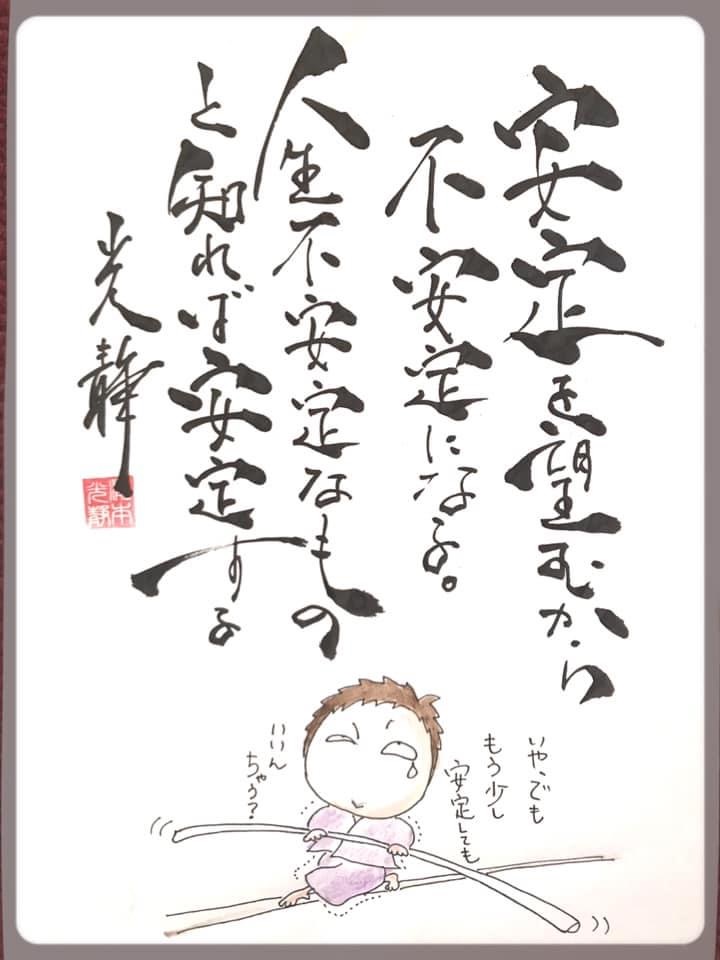 安定を望むから
不安定になる。
人生不安定なもの
と知れば安定する
光静
いや、でも
もう少し
安定しても
いいん
ちゃう?